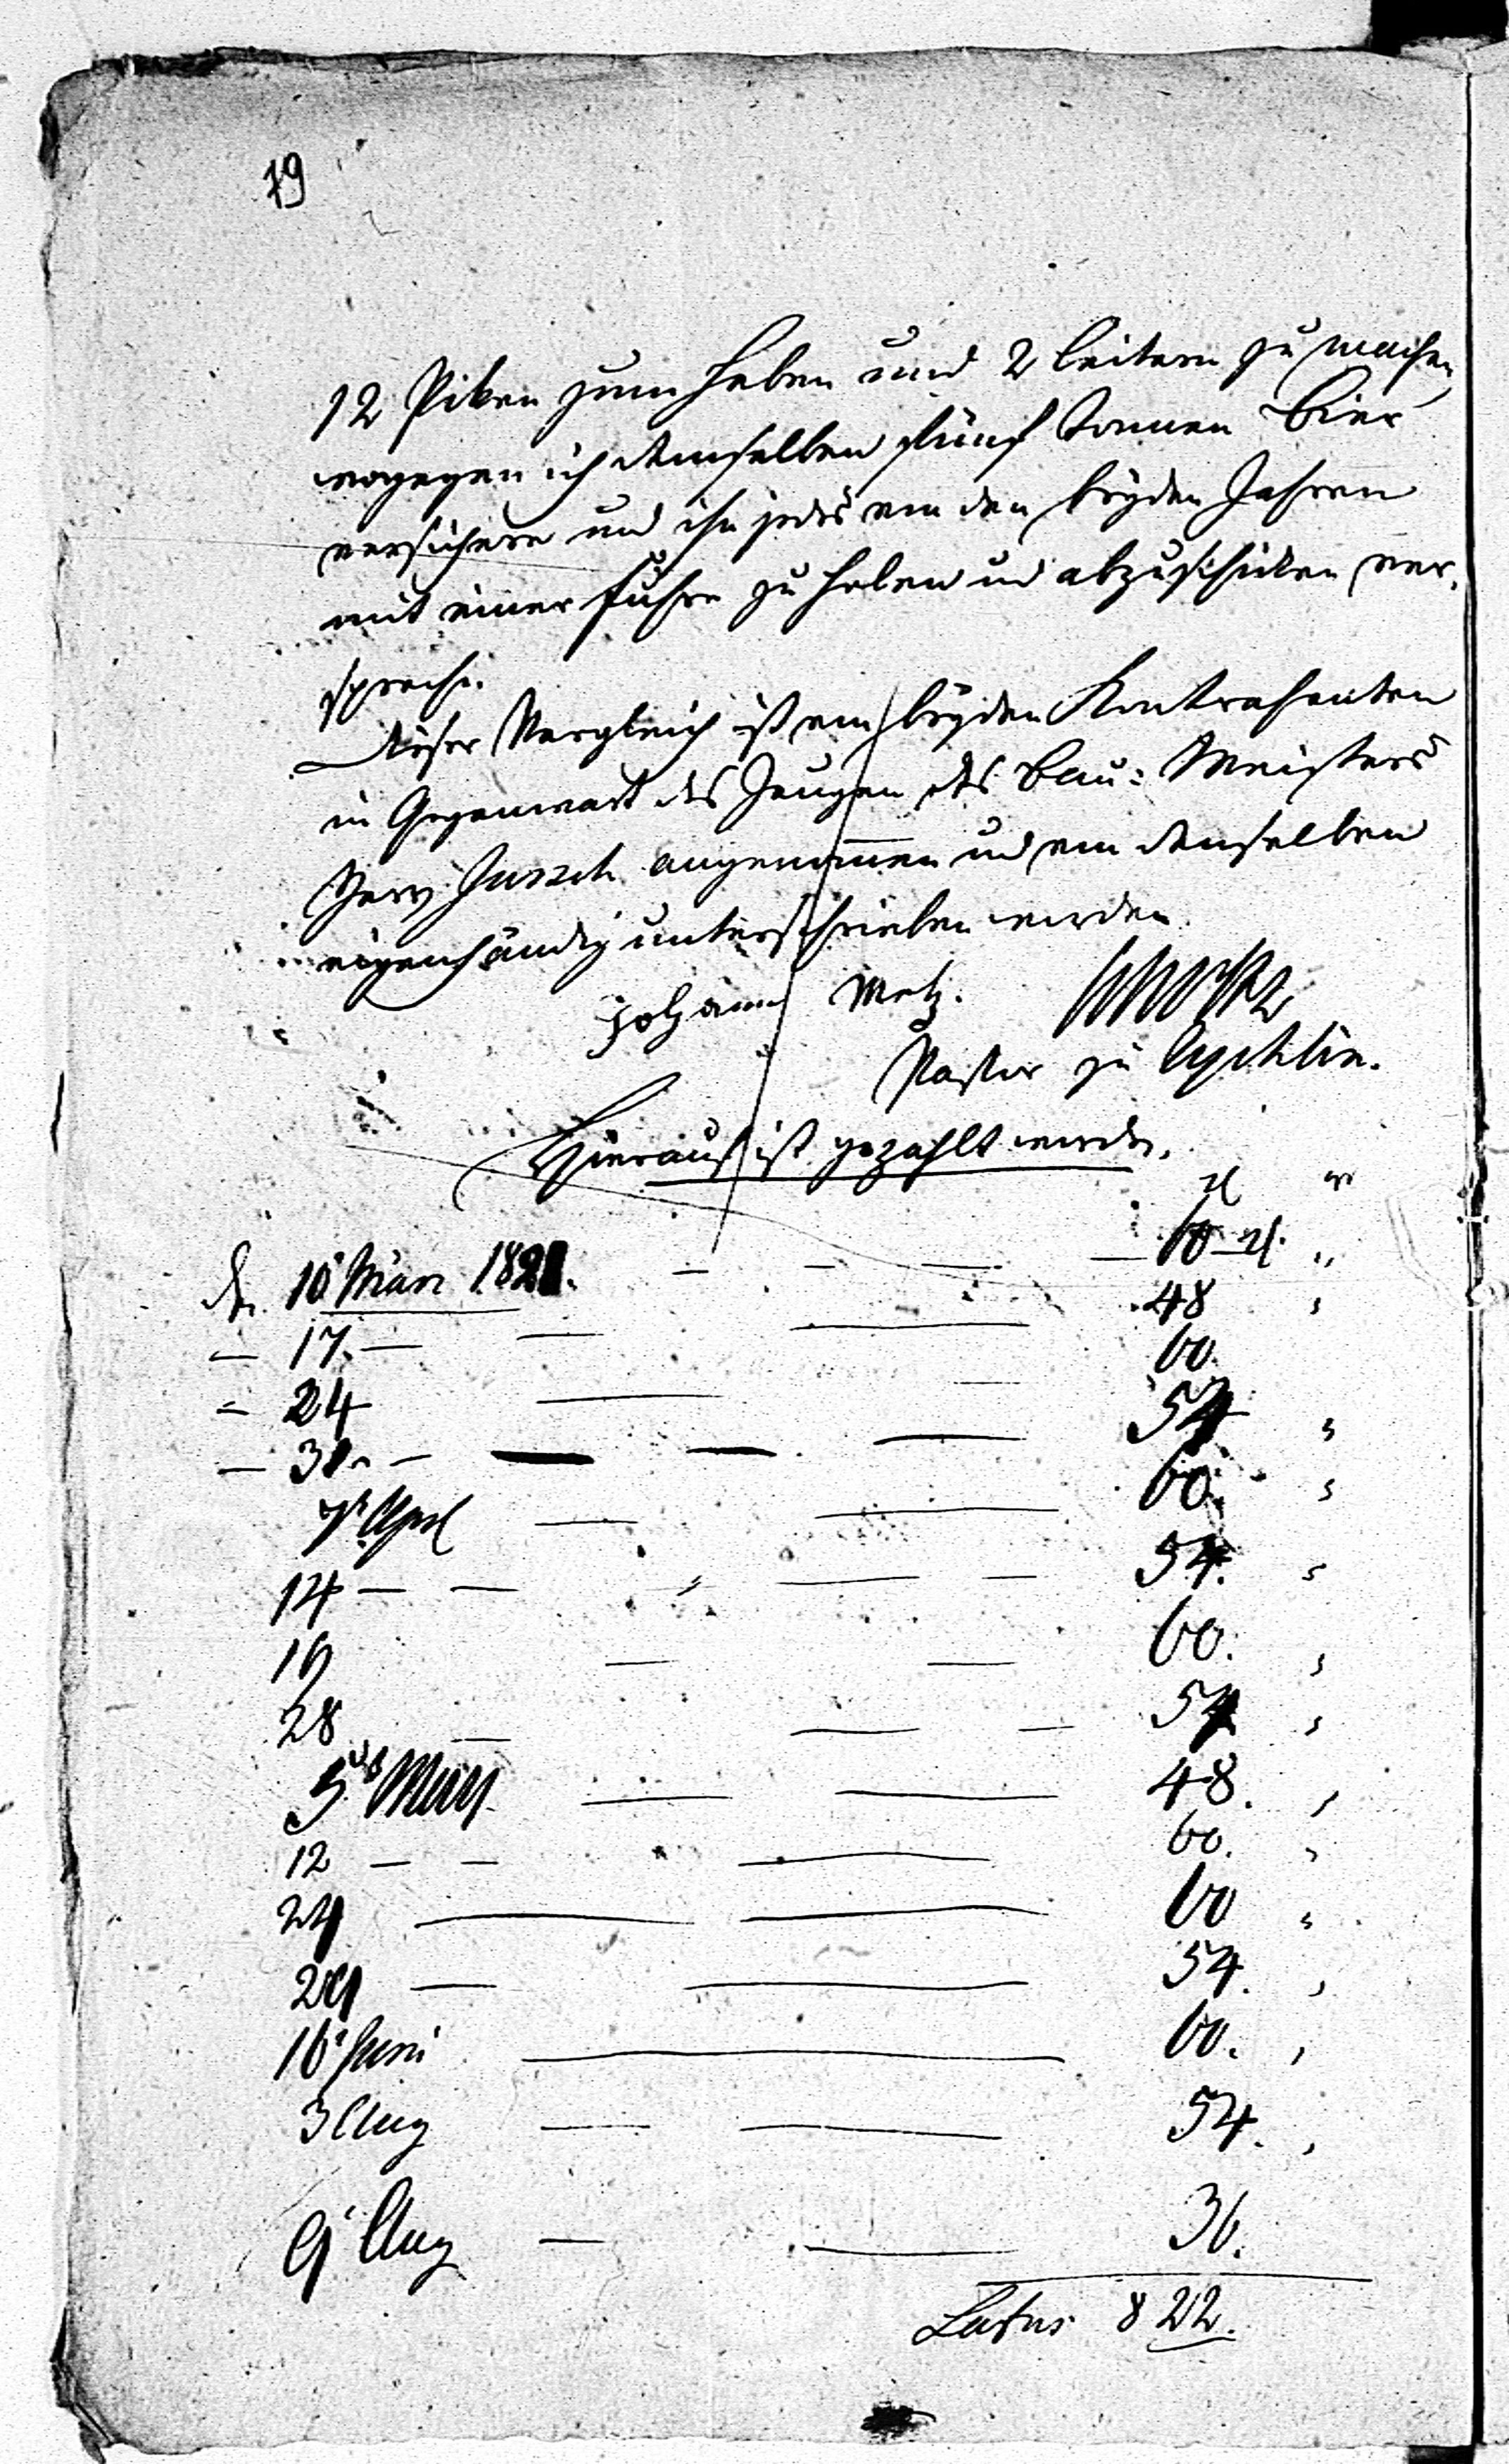 79
12 Piken zum heben und 2 Leitern zu machen
wogegen ich demselben fünf Tonnen Bier
versichere und ihn jedes von den beyden Jahren
mit einer Fuhre zu holen und abzuschicken ver-
spreche.
Dieser Vergleich ist von beyden Kontrahenten
in Gegenwart des Zeugen des Bau: Meisters
Herrn angenommen und von denselben
eigenhändig unterschrieben worden.
Johann Metz.
Pastor zu
Hierauf ist gezahlt worden.
den 10 März 1821. 60
17. 48
24 60.
31. 54
7 Aprl 60.
14 54.
60.
28 54
5 May 48.
12 60.
60
54.
16 Juni 60.
3 Aug 54.
9 Aug 36.
Latus 822.